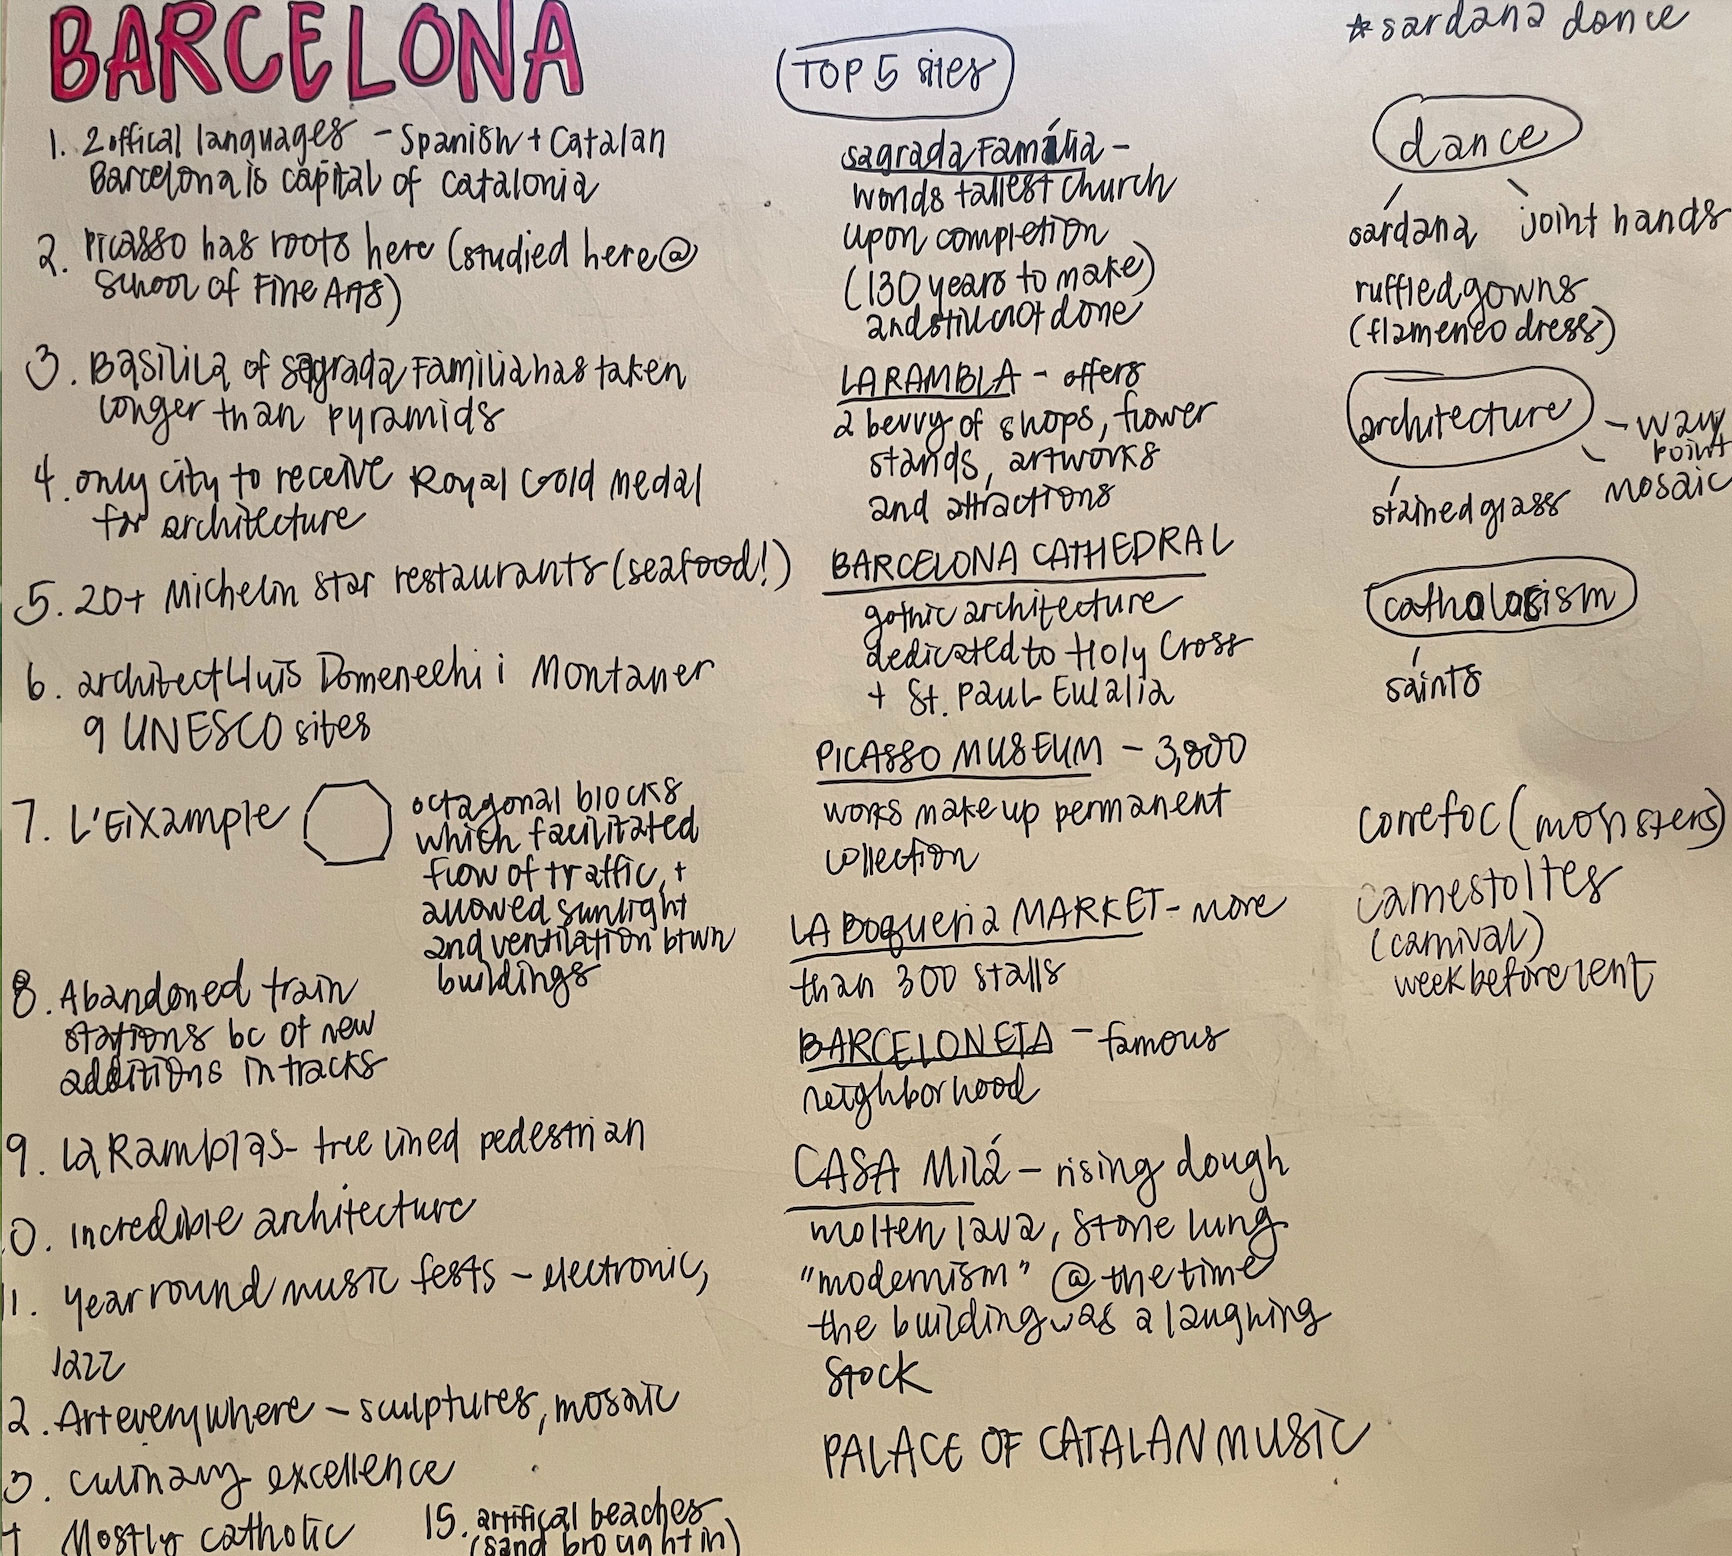 BARCELONA
1. 2 offical languages - Spanish + Catalan
Barcelona is capital of Catalonia
2. Picasso has roots here (studied here @
School of Fine Arts)
3. Basilila of Sagrada Familia has taken
longer than pyramids
4. only city to receive Royal Gold medal
for architecture
5. 20+ Michelin star restaurants (seafood!)
6. architect Lluis Domenechi i Montaner
9 UNESCO sites
7. L'Eixample
octagonal blocks
which facilitated
flow of traffic, +
allowed sunlight
and ventilation btwn
buildings
8. Abandoned train
stations bc of new
additions in tracks
9. La Ramblas - tree lined pedestrian
0. incredible architecture
11. year round music fests - electronic,
jazz
2. Art everywhere - sculptures, mosaic
3. culinary excellence
Mostly catholic
15. artifical beaches
(sand brought in)
TOP 5 sites
sagrada Família -
worlds tallest church
upon completion
(130 years to make)
and still not done
LA RAMBLA - offers
a bevvy of shops, flower
stands, artworks
and attractions
BARCELONA CATHEDRAL
gothic architecture
dedicated to Holy Cross
+ St. Paul Eulalia
PICASSO MUSEUM - 3,800
works make up permanent
collection
LA Boqueria MARKET - more
than 300 stalls
BARCELONETA - famous
neighborhood
CASA Milá - rising dough
molten lava, stone lung
"modernism" @ the time
the building was a laughing
stock
PALACE OF CATALAN MUSIC
*sardana dance
dance
sardana joint hands
ruffled gowns
(flamenco dress)
architecture - way
point
stained glass mosaic
catholocism
saints
correfoc (monsters)
camestoltes
(carnival)
week before lent